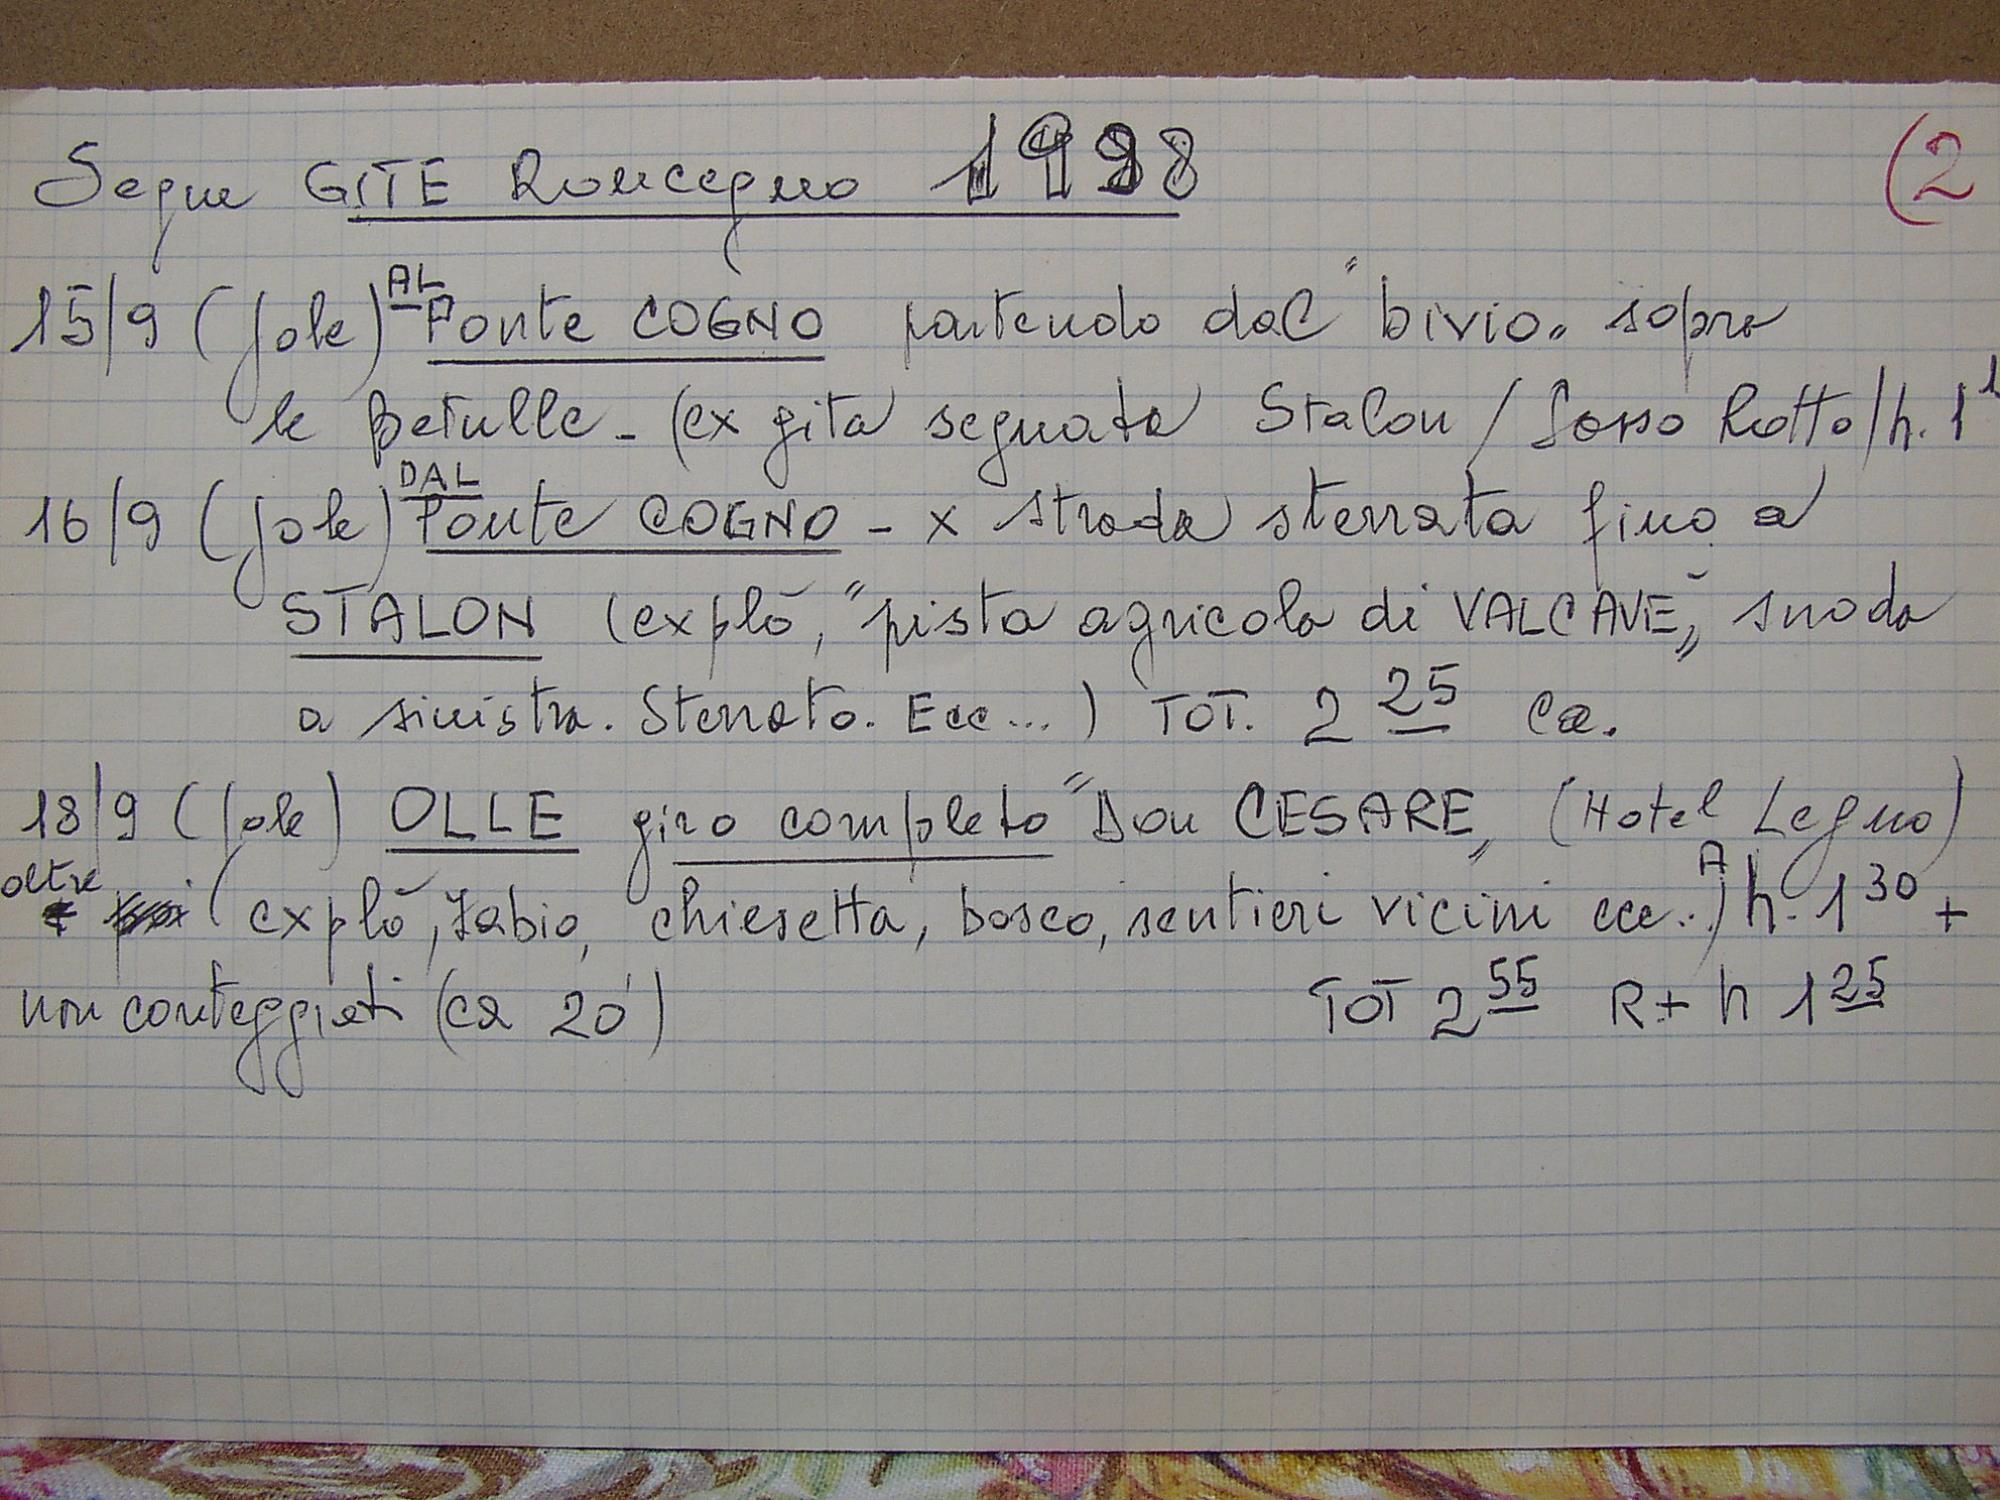 Segue GITE Roncegno 1998
(2
15/9 (Jole) AL Ponte COGNO partendo dal "bivio" sopra
le Betulle - (ex gita segnata Stalon / Sasso Rotto / h. 1
16/9 (Jole) DAL Ponte COGNO - x strada sterrata fino a
STALON (explò, "pista agricola di VALCAVE", snoda
a sinistra. Sterrato. Ecc...) TOT. 2 25 ca.
18/9 (Jole) OLLE giro completo "Don CESARE" (Hotel Legno)
oltre (explò, chiesetta, bosco, sentieri vicini ecc..) A h. 1 30 +
non conteggiati (ca 20') TOT 2 55 R + h 1 25